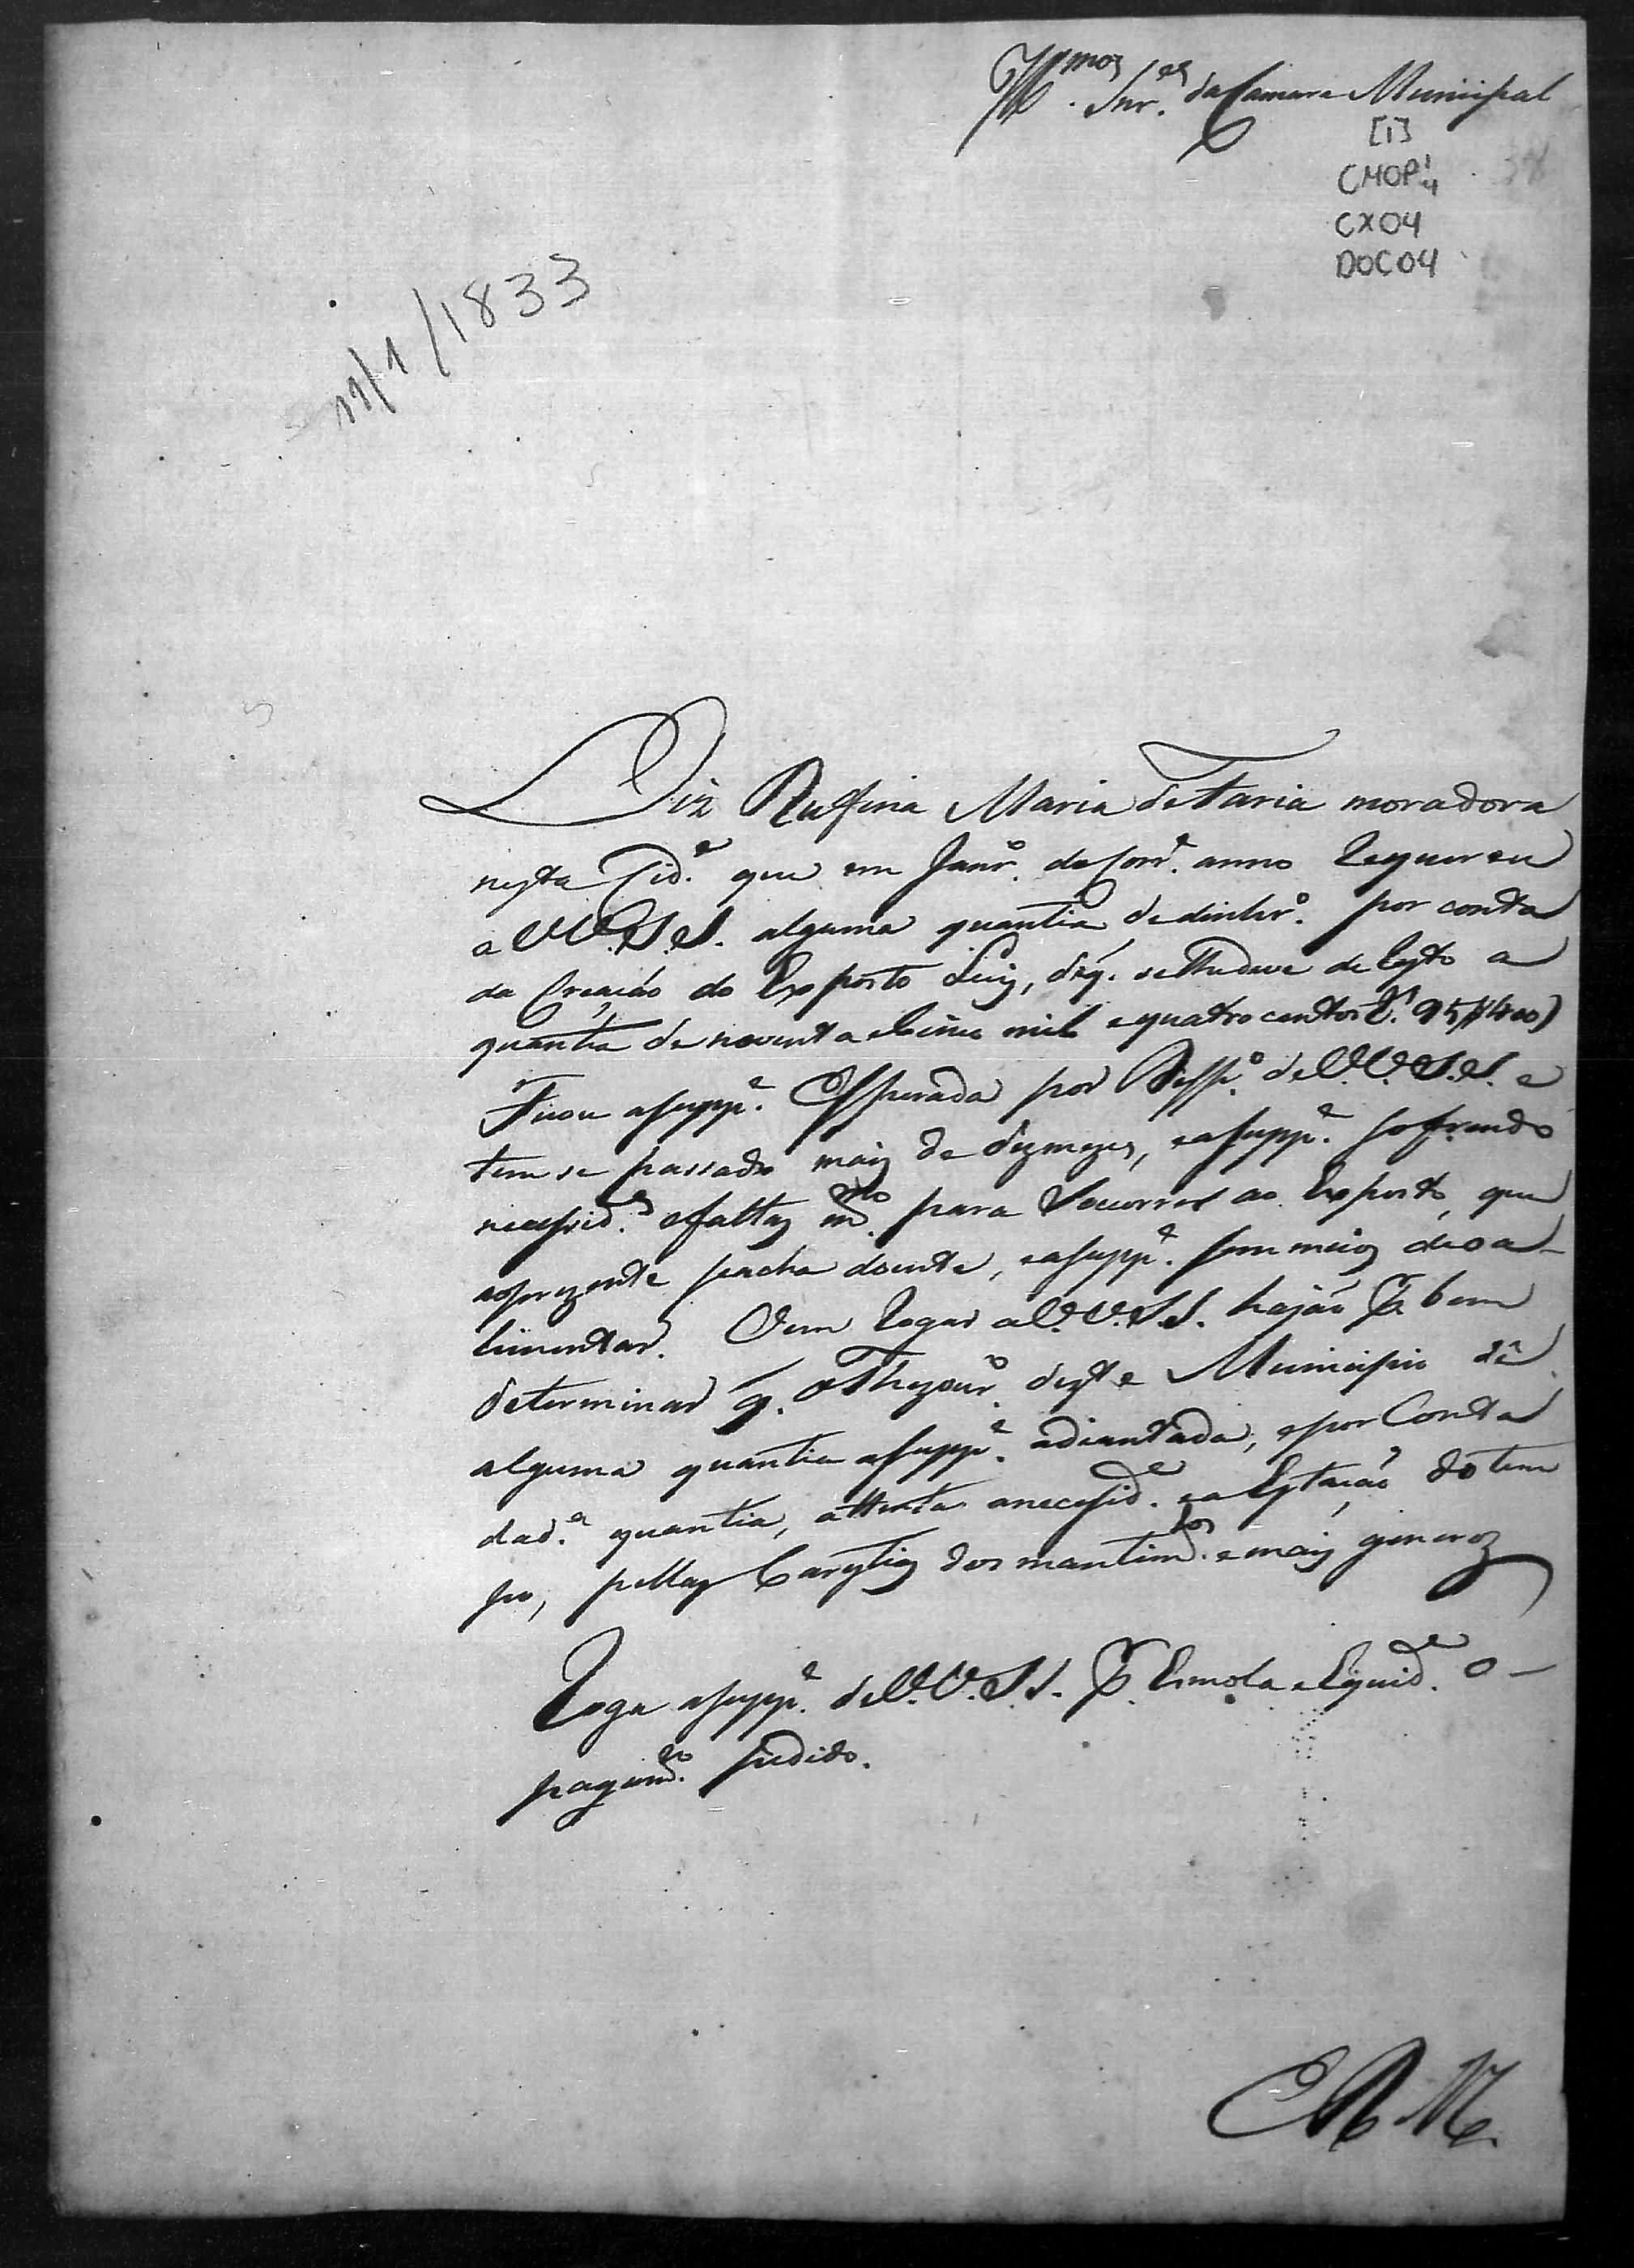 Ill.mos Snr.es da Camara Municipal
[1]
CMOP 1/4
38
CX04
DOC04
11/1/1833
Diz Ruffina Maria de Faria moradora
nesta Cid.e que em Janr.o do Corr.e anno Requereu
a VV.S.S. alguma quantia de dinhr.o por conta
da Creação do Exposto Luiz, de q. se lhe deve de resto a
quantia de noventa e Cinco mil e quatro centos r.s 95$400)
Ficou a supp.e Esperada por Desp.o de V.V.S.S. e
tem se passado mais de dez mezes, e a supp.e sofrendo
necessid.es e faltas m.to para Socorrer ao Exposto, que
ao prezente se acha doente, e a supp.e sem meios de o a-
limentar. Vem Rogar a V.V.S.S. hajão P. bem
determinar q. o Thezour.o deste Municipio dê
alguma quantia a supp.e adiantada, e por Conta
da d.a quantia, attenta a necessid.e e a Estação do tem
po, pellas Carestias dos mantim.tos e mais generos
Roga a supp.e de V.V.S.S. P. Esmola e Equid.e o -
pagam.to pedido.
E R M.